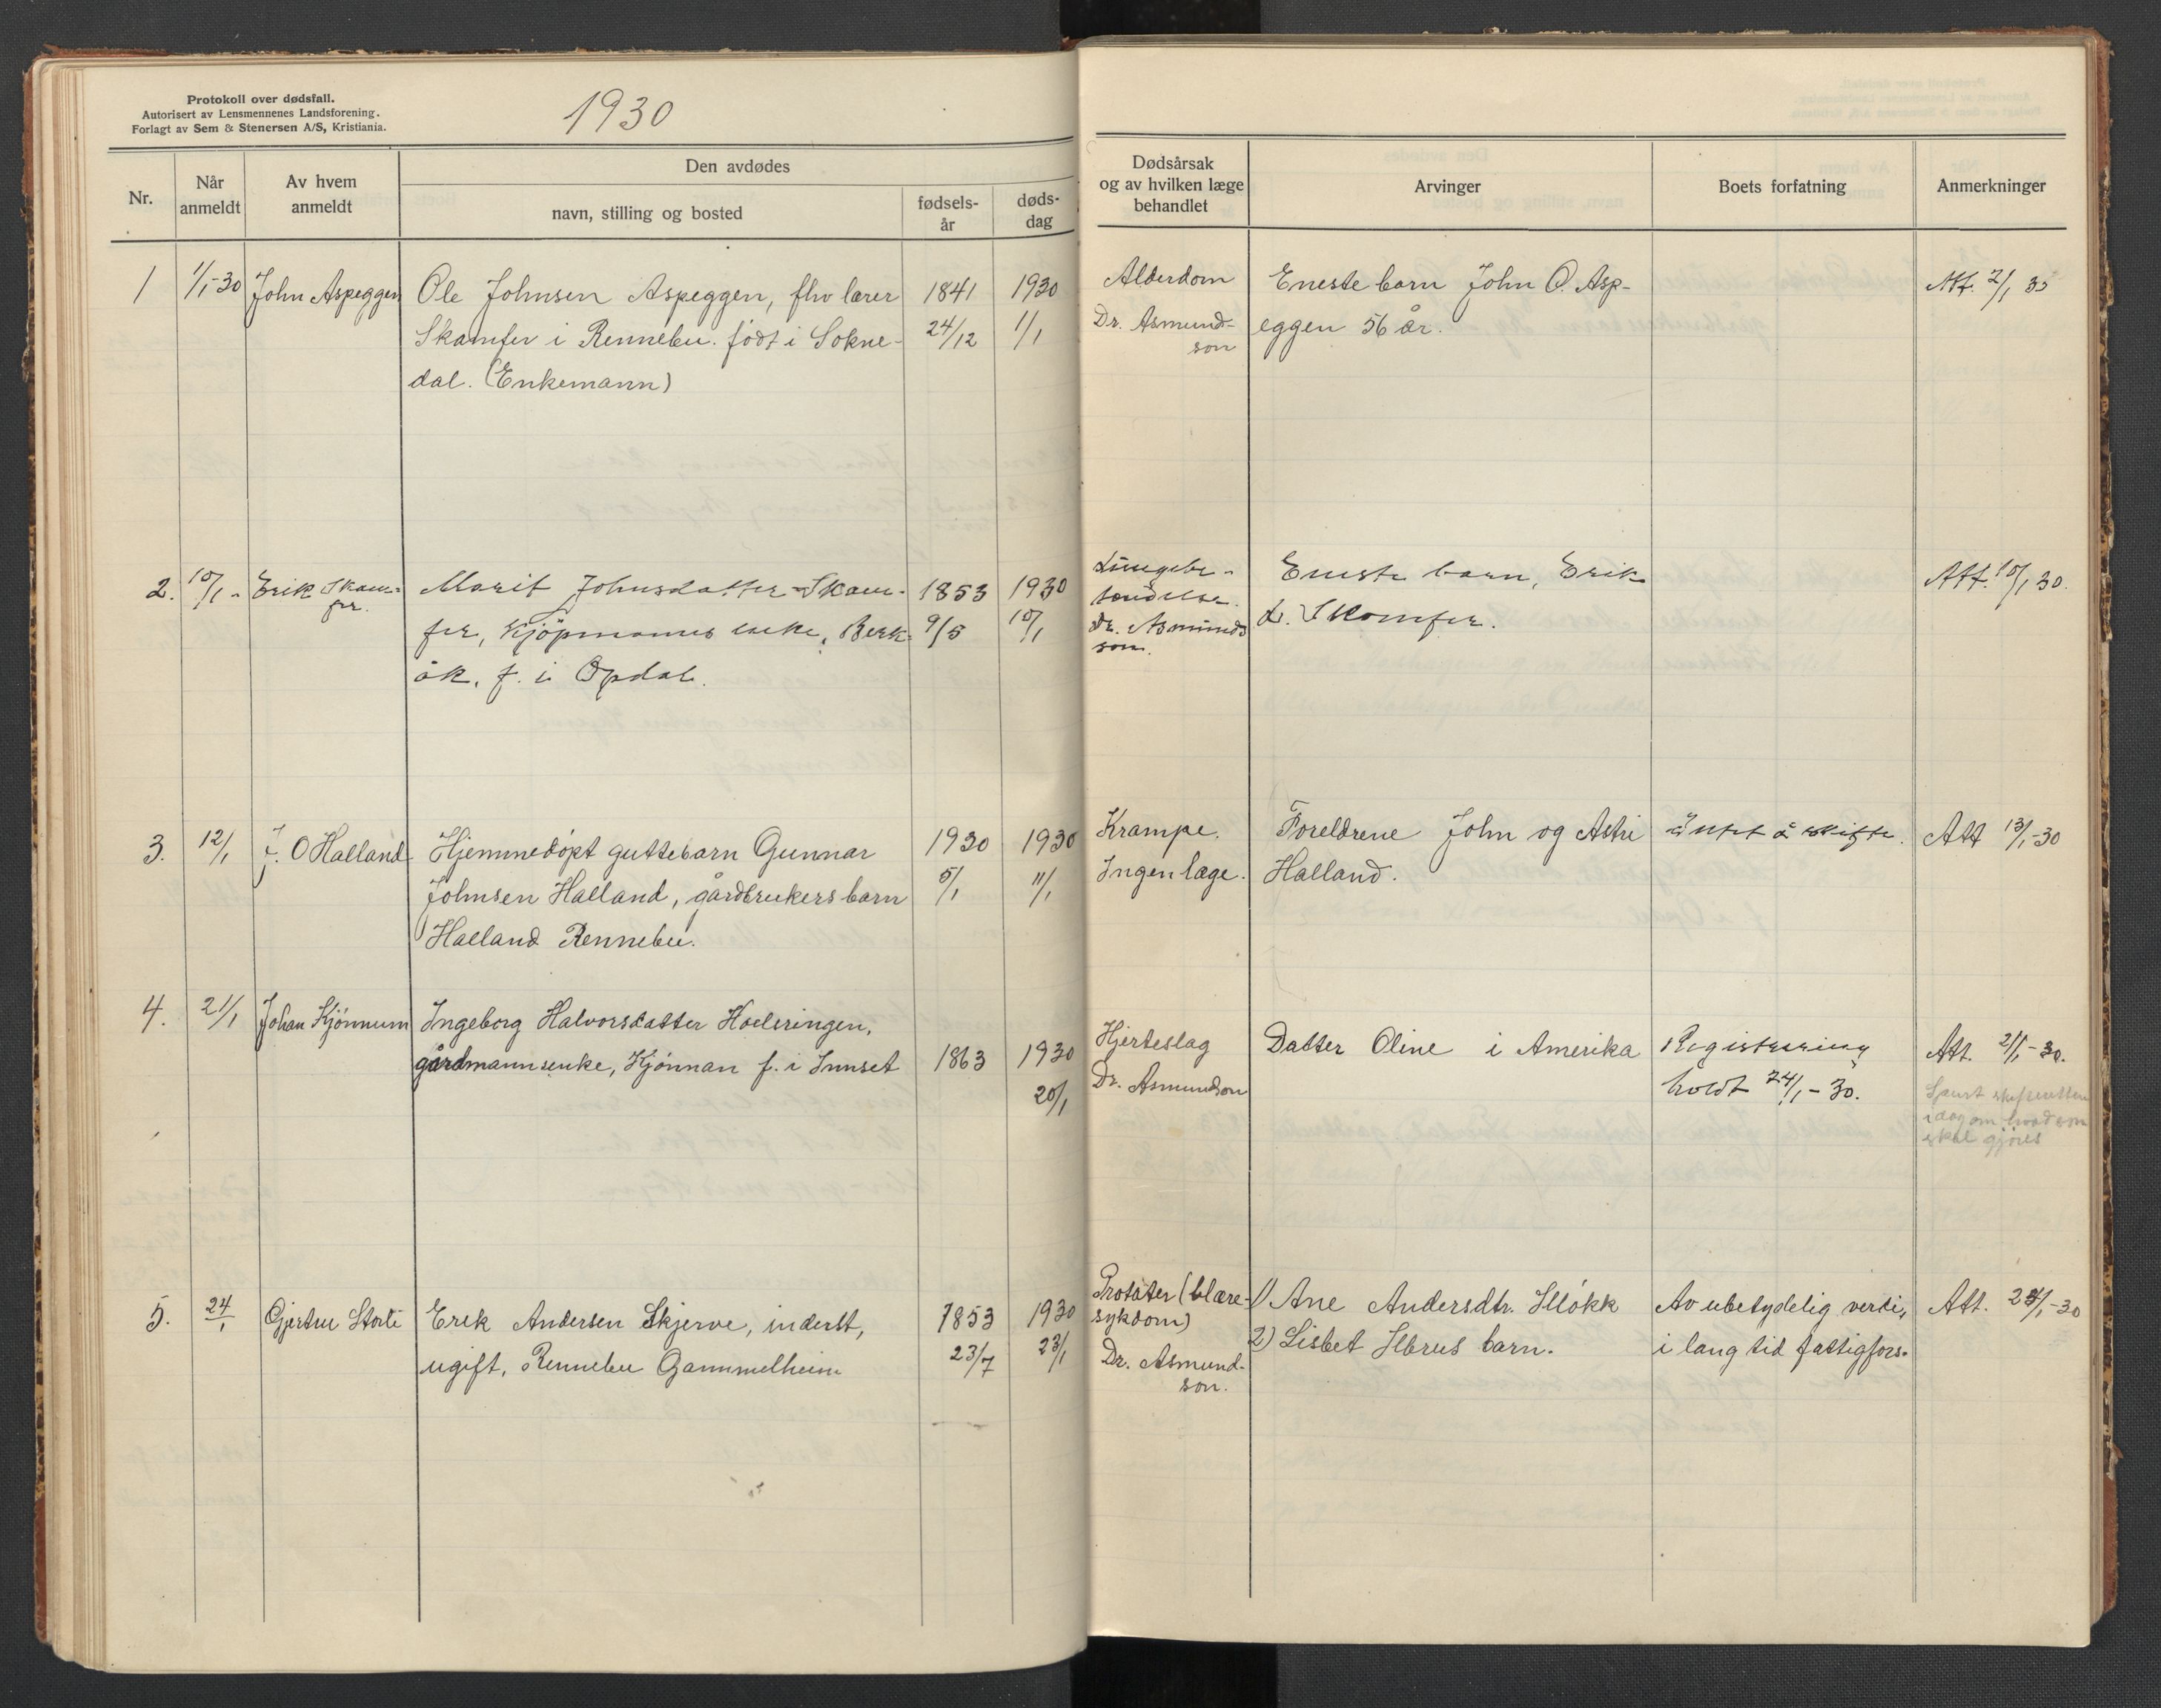 Protokoll over dødsfall.
Autorisert av Lensmennenes Landsforening.
Forlagt av Sem & Stenersen A/S, Kristiania.
1930
Nr.
Når
anmeldt
Av hvem
anmeldt
Den avdødes
navn, stilling og bosted
fødsels-
år
døds-
dag
Dødsårsak
og av hvilken læge
behandlet
Arvinger
Boets forfatning
Anmerkninger
1 1/1-30 John Aspeggen Ole Johnsen Aspeggen, fhv lærer 1841 1930 Alderdom Eneste barn John O. Asp- Att. 2/1 30
Skamfer i Rennebu. født i Sokne- 24/12 1/1 Dr. Asmund- eggen 56 år.
son
dal. (Enkemann)
2. 10/1- Erik Skam- Marit Johnsdatter Skam- 1853 1930 Lungebe- Eneste barn, Erik Att. 10/1 30.
fer. tendelse.
fer, kjöpmanns enke, Berk- 9/5 10/1 Dr. Asmunds Skamfer.
son.
åk, f. i Opdal.
3. 12/1 J. O Halland Hjemmedöpt guttebarn Gunnar 1930 1930 Krampe. Foreldrene John og Astri Intet å skifte. Att 13/1-30
Johnsen Halland, gårdbrukers barn 5/1 11/1 Ingen læge. Halland.
Halland Rennebu.
4. 21/1 Johan Kjönnum Ingeborg Halvorsdatter
gårdmannsenke, Kjönnan f. i Innset 1863 1930 Hjerteslag Datter Oline i Amerika Registrering Att. 21/1-30.
20/1 Dr. Asmundson holdt 24/1-30.
idag om hvad som
skal gjöres
5. 24/1 Gjertru Storli Erik Andersen Skjerve, inderst, 1853 1930 (blære- 1) Ane Andersdtr. Av ubetydelig verdi, Att. 24/1-30
sykdom)
ugift, Rennebu Gammelheim 23/7 23/1 Dr. Asmund- 2) Lisbet barn. i lang tid fattigfors.
son.